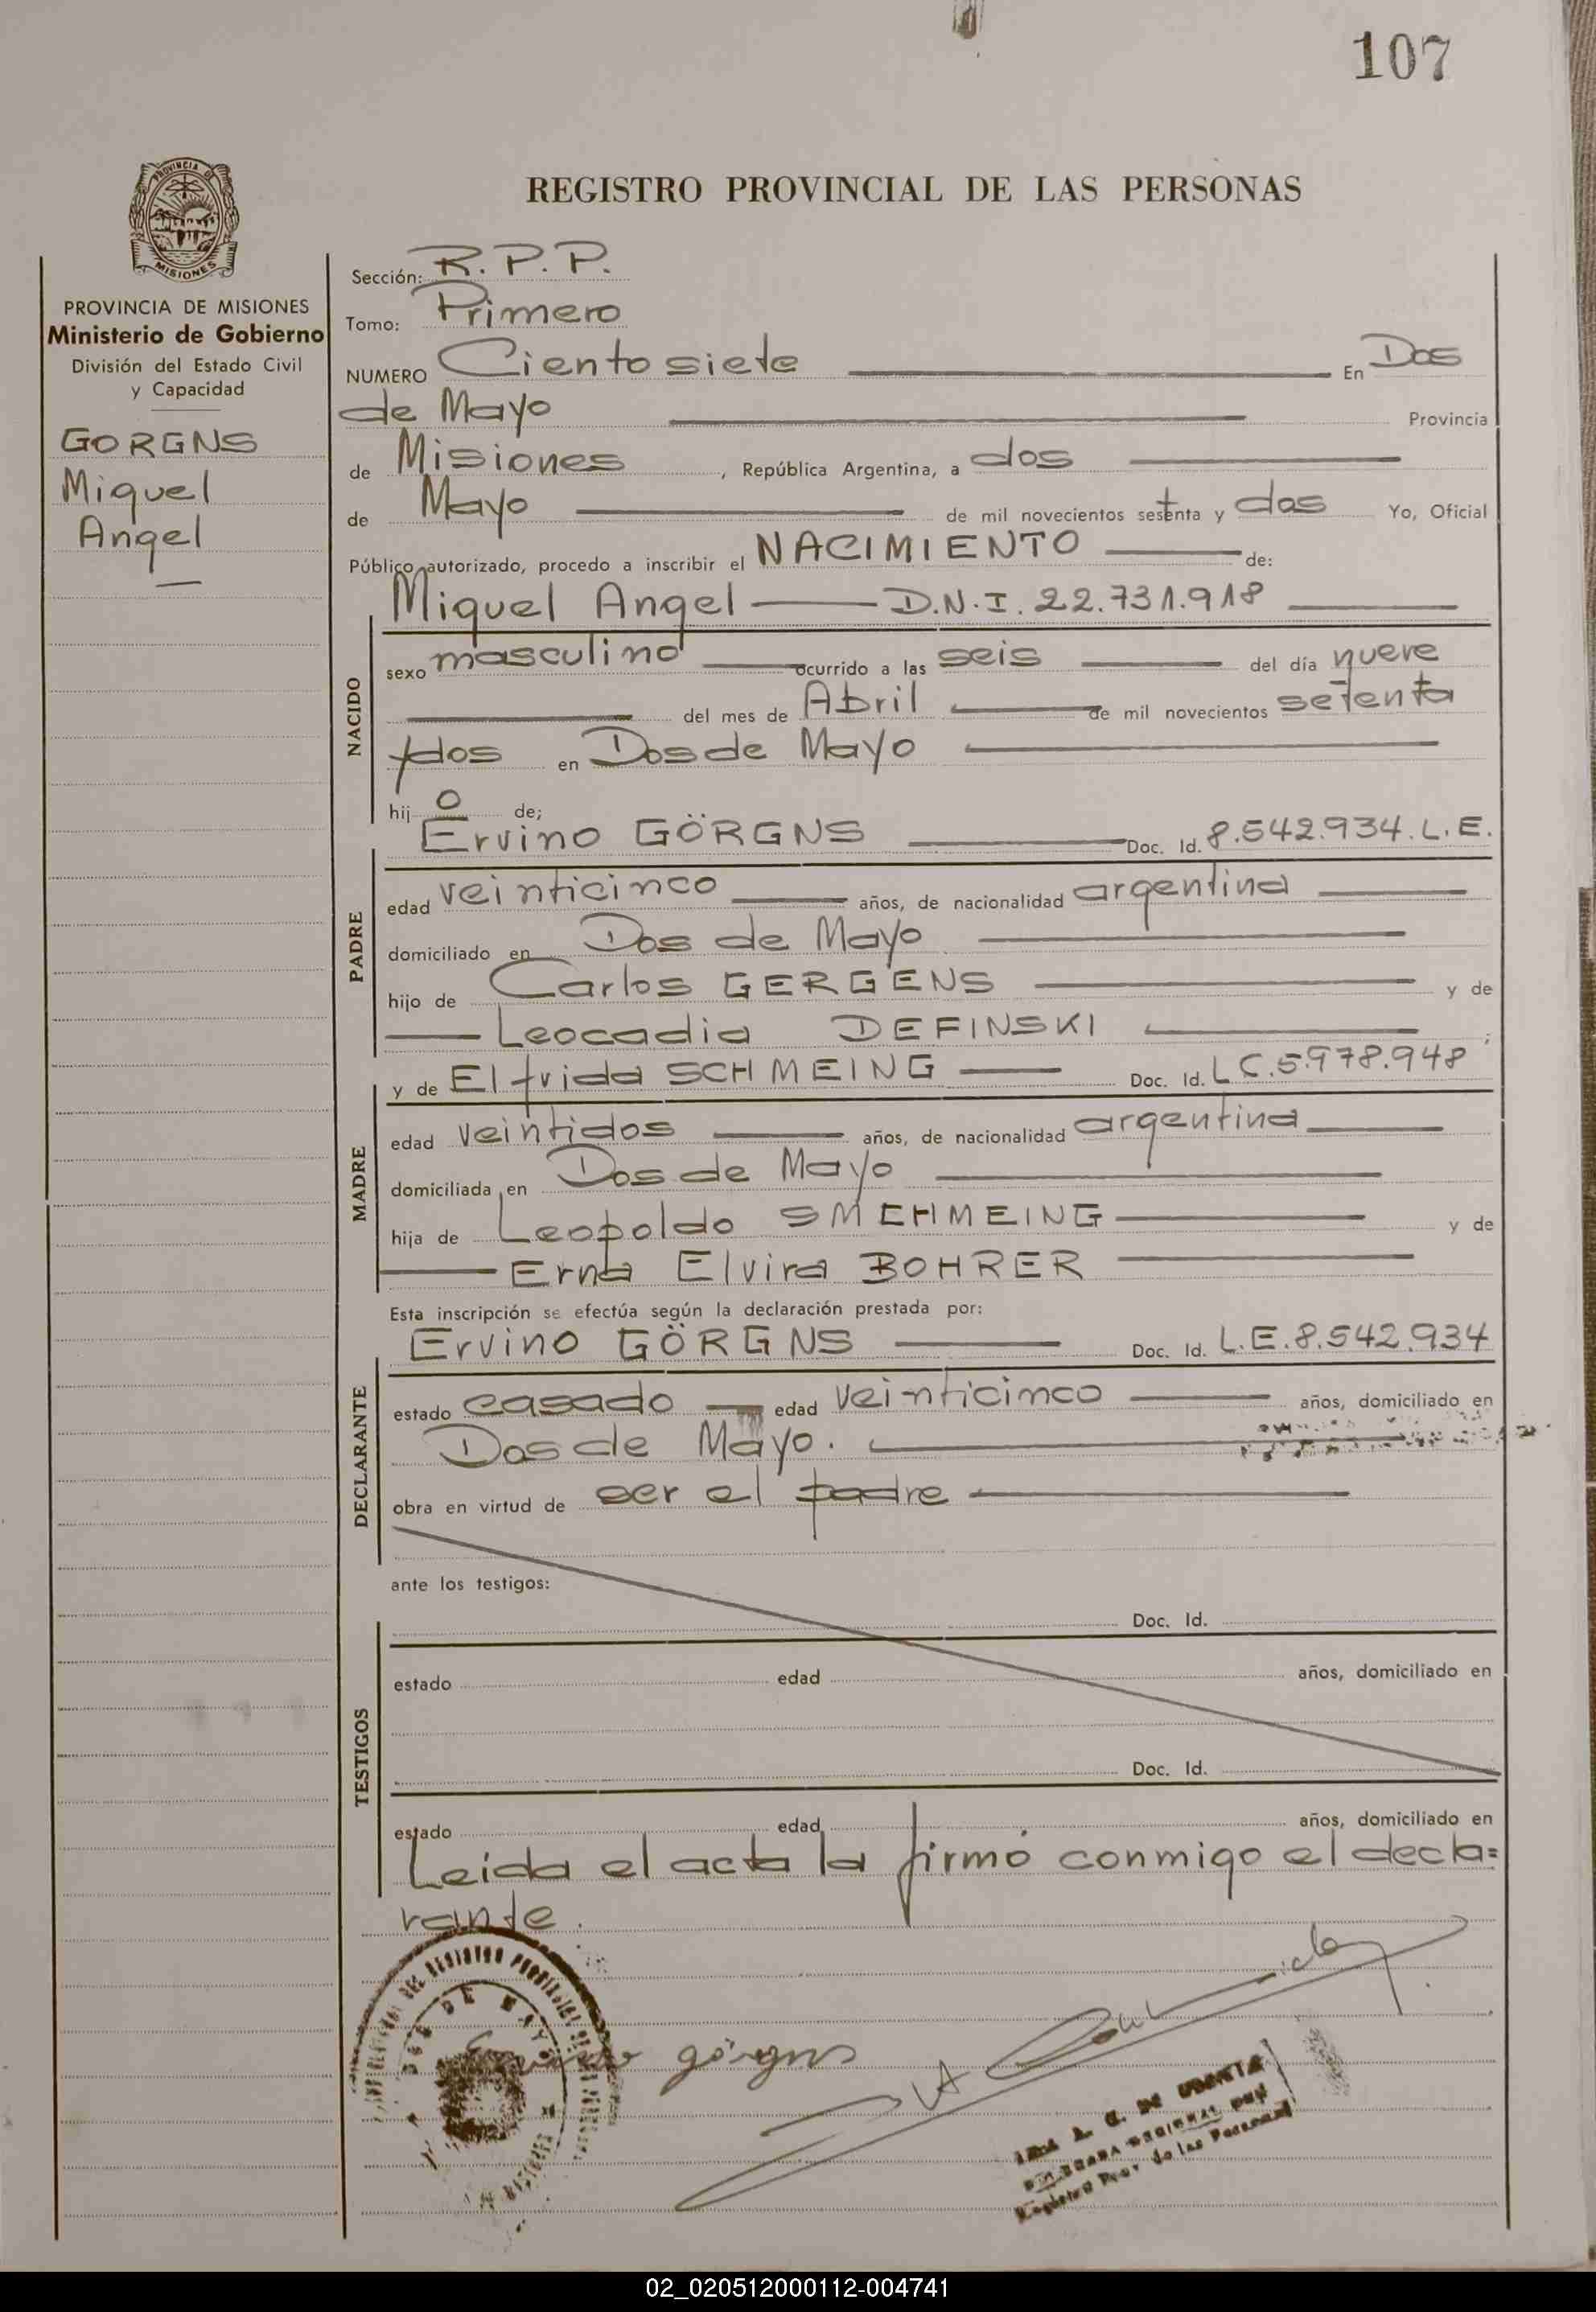 107
PROVINCIA DE
MISIONES
REGISTRO PROVINCIAL DE LAS PERSONAS
PROVINCIA DE MISIONES
Ministerio de Gobierno
División del Estado Civil
y Capacidad
GORGNS
Miguel
Angel
Sección: R.P.P.
Tomo: Primero
NUMERO Ciento siete En Dos
de Mayo Provincia
de Misiones, República Argentina, a dos
de Mayo de mil novecientos setenta y dos Yo, Oficial
Público autorizado, procedo a inscribir el NACIMIENTO de:
Miguel Angel D.N.I. 22.731.918
NACIDO
sexo masculino ocurrido a las seis del día nueve
del mes de Abril de mil novecientos setenta
y dos en Dos de Mayo
hijo de;
Ervino GÖRGNS Doc. Id. 8.542.934. L.E.
PADRE
edad veinticinco años, de nacionalidad argentina
domiciliado en Dos de Mayo
hijo de Carlos GERGENS y de
Leocadia DEFINSKI ;
y de Elfrida SCHMEING Doc. Id. L C. 5.978.948
MADRE
edad veintidos años, de nacionalidad argentina
domiciliada en Dos de Mayo
hija de Leopoldo SMCHMEING y de
Erna Elvira BOHRER
Esta inscripción se efectúa según la declaración prestada por:
Ervino GÖRGNS Doc. Id. L.E. 8.542.934
DECLARANTE
estado casado edad veinticinco años, domiciliado en
Dos de Mayo.
obra en virtud de ser el padre
ante los testigos:
Doc. Id.
TESTIGOS
estado edad años, domiciliado en
Doc. Id.
estado edad años, domiciliado en
Leida el acta la firmó conmigo el decla=
rante.
DOS DE MAYO
görgns
Registro Prov. de las Personas
02_020512000112-004741